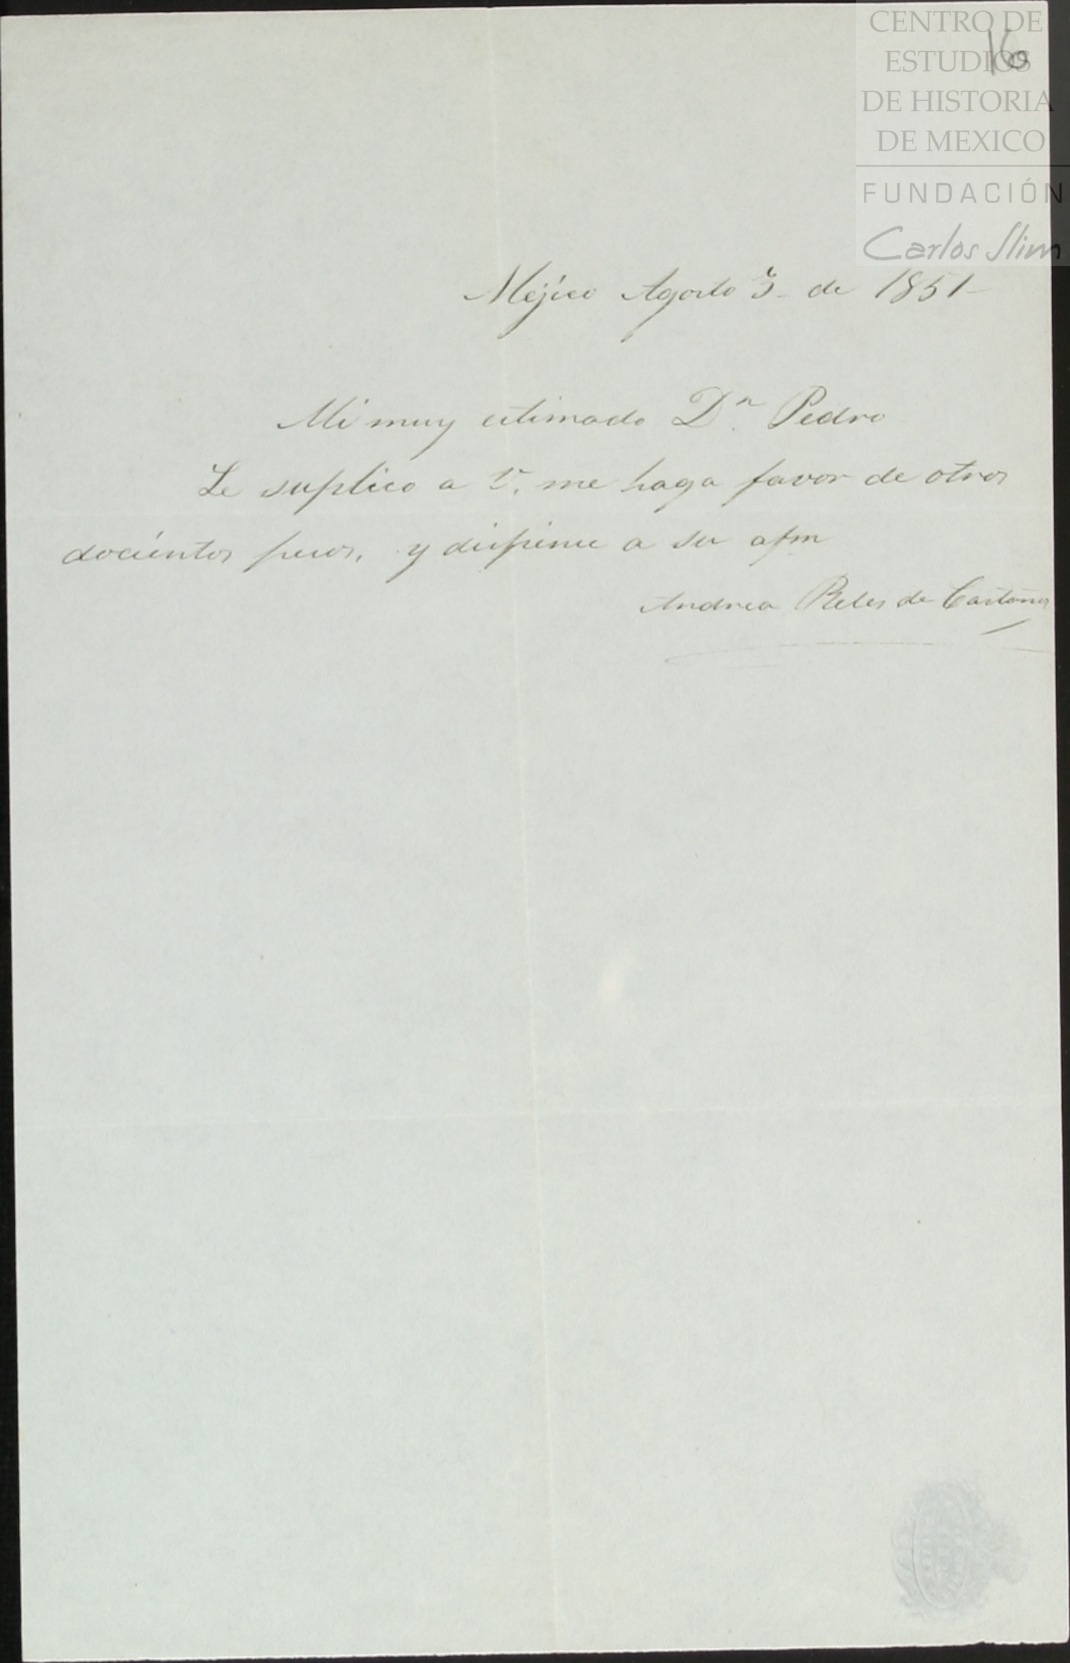 CENTRO DE
ESTUDIOS
DE HISTORIA
DE MEXICO
FUNDACIÓN
Carlos Slim
16
Méjico Agosto 3 de 1851
Mi muy estimado Dn Pedro
Le suplico a V. me haga favor de otros
docientos pesos, y dispense a su afm
Andrea Reles de Castaños